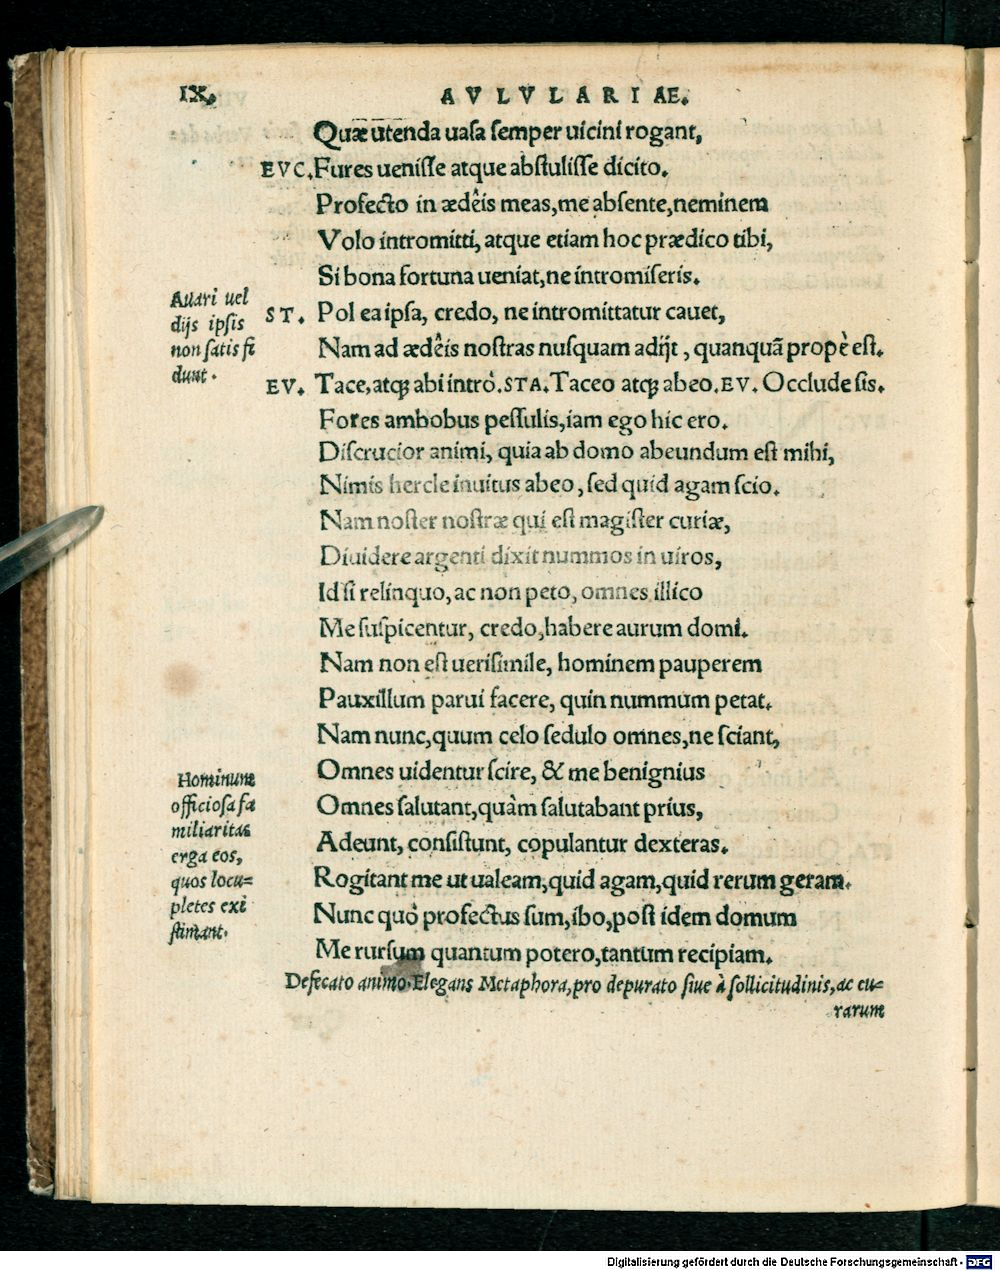 IX.
AVLVLARIAE.
Quæ utenda uasa semper uicini rogant,
EVC. Fures uenisse atque abstulisse dicito.
Profecto in ædêis meas, me absente, neminem
Volo intromitti, atque etiam hoc prædico tibi,
Si bona fortuna ueniat, ne intromiseris.
Auari uel
dijs ipsis
non satis fi
dunt.
ST. Pol ea ipsa, credo, ne intromittatur cauet,
Nam ad ædêis nostras nusquam adijt, quanquã propè est.
EV. Tace, atq; abi intrò. STA. Taceo atq; abeo. EV. Occlude sis.
Fores ambobus pessulis, iam ego hic ero.
Discrucior animi, quia ab domo abeundum est mihi,
Nimis hercle inuitus abeo, sed quid agam scio.
Nam noster nostræ qui est magister curiæ,
Diuidere argenti dixit nummos in uiros,
Id si relinquo, ac non peto, omnes illico
Me suspicentur, credo, habere aurum domi.
Nam non est uerisimile, hominem pauperem
Pauxillum parui facere, quin nummum petat.
Nam nunc, quum celo sedulo omnes, ne sciant,
Omnes uidentur scire, & me benignius
Omnes salutant, quàm salutabant prius,
Adeunt, consistunt, copulantur dexteras.
Rogitant me ut ualeam, quid agam, quid rerum geram.
Nunc quò profectus sum, ibo, post idem domum
Me rursum quantum potero, tantum recipiam.
Hominum
officiosa fa
miliaritas
erga eos,
quos locu=
pletes exi
stimant.
Defecato animo. Elegans Metaphora, pro depurato siue à sollicitudinis, ac cu=
rarum
Digitalisierung gefördert durch die Deutsche Forschungsgemeinschaft - DFG